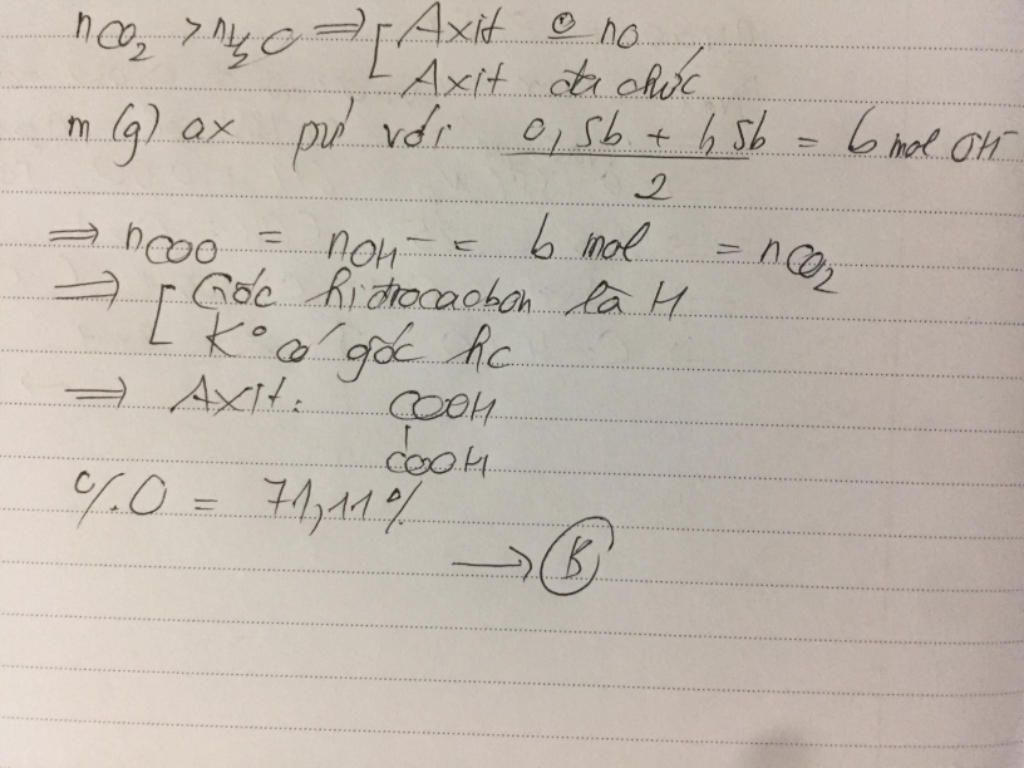 nCO2 > nH2O ⟹ [ Axit ko no
Axit đa chức
m (g) ax pứ với (0,5b + 1,5b)/2 = b mol OH⁻
⟹ nCOO = nOH⁻ = b mol = nCO2
⟹ [ Gốc hiđrocacbon là H
Ko có gốc hc
⟹ Axit: COOH
COOH
%O = 71,11%
→ B